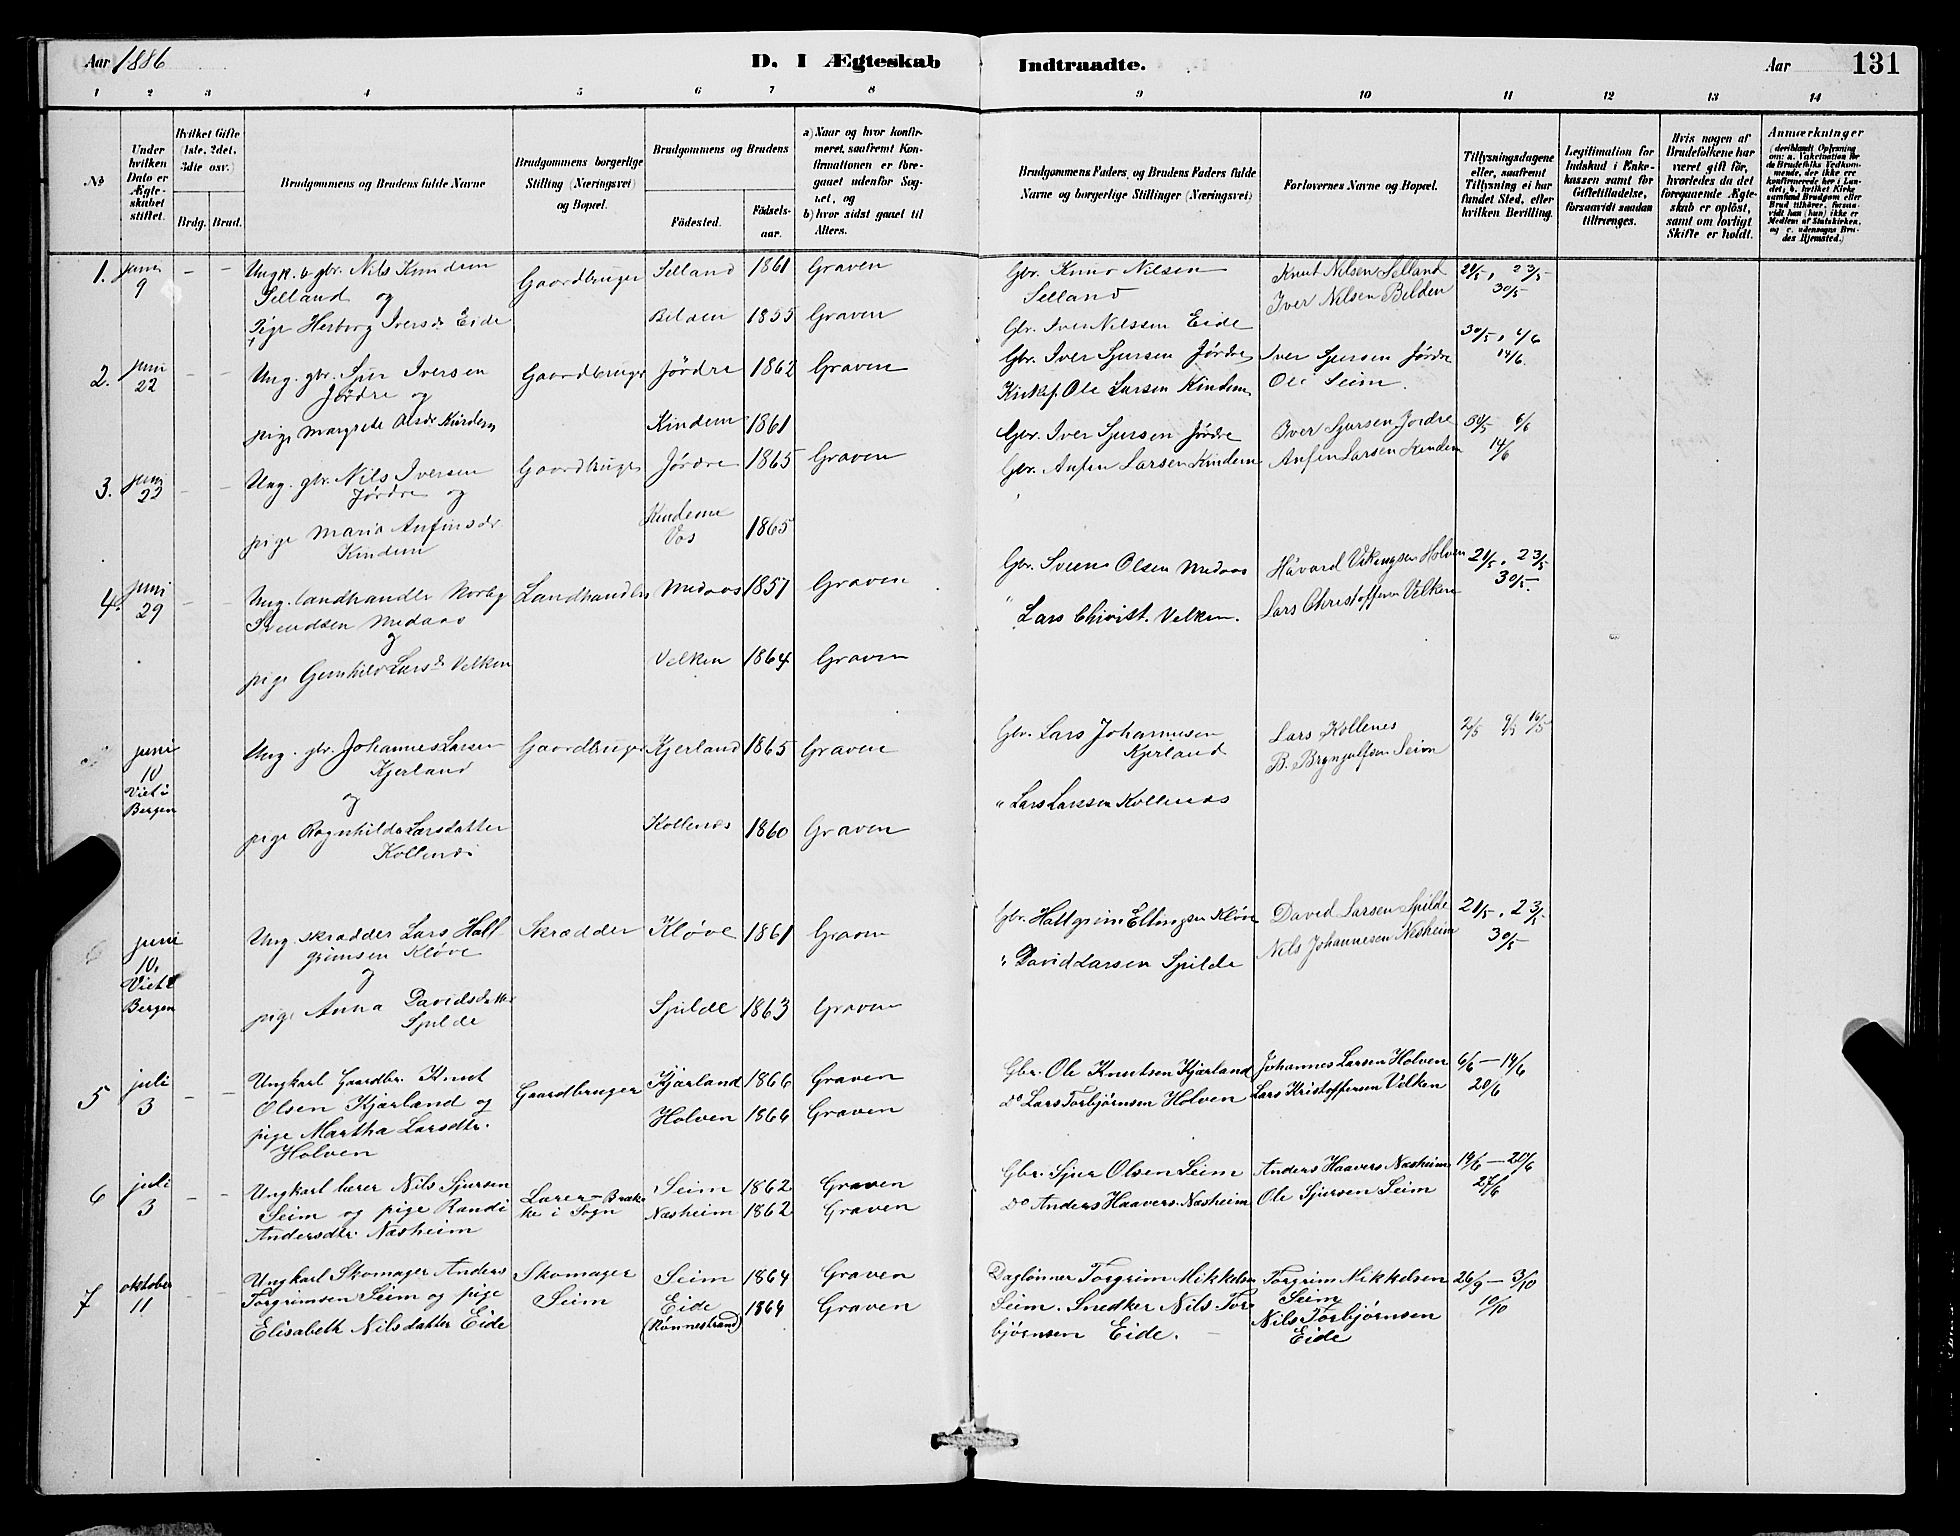 Aar 1886
D. I Ægteskab Indtraadte.
Aar
131
1 2 3 4 5 6 7 8 9 10 11 12 13 14
No
Under hvilken Dato er Ægteskabet stiftet.
Hvilket Gifte (1ste, 2det, 3die osv.)
Brdg. Brud.
Brudgommens og Brudens fulde Navne
Brudgommens borgerlige Stilling (Næringsvei) og Bopæl.
Brudgommens og Brudens
Födested.
Födselsaar.
a) Naar og hvor konfirmeret, saafremt Konfirmationen er foregaaet udenfor Sognet, og
b) hvor sidst gaaet til Alters.
Brudgommens Faders, og Brudens Faders fulde Navne og borgerlige Stillinger (Næringsvei)
Forlovernes Navne og Bopæl.
Tillysningsdagene eller, saafremt Tillysning ei har fundet Sted, efter hvilken Bevilling.
Legitimation for Indskud i Enkekassen samt for Giftetilladelse, forsaavidt saadan tiltrænges.
Hvis nogen af Brudefolkene har været gift för, hvorledes da det foregaaende Ægteskab er oplöst, samt om lovligt Skifte er holdt.
Anmærkninger
1. Juni 9 - - Nils Knudsen Gaardbruger Selland 1861 Graven Gbr. Knud Nilsen Knut Nilsen Selland 21/5, 23/5
Selland og Selland Iver Nilsen Belden 30/5
Pige Herborg Iversdr Eide Belden 1855 Graven Gbr. Iver Nilssen Eide
2. Juni 22 - - Ung. gbr. Sjur Iversen Gaardbruger Jørdre 1862 Graven Gbr. Iver Sjursen Jørdre Iver Sjursen Jørdre 30/5, 6/6
Jørdre og Ole Larsen Kindem Ole Seim. 14/6
pige Margrete Olsdr Kindem Kindem 1861
3. Juni 23 - - Ung. gbr. Nils Iversen Gaardbruger Jørdre 1865 Graven Gbr. Iver Sjursen Jørdre Iver Sjursen Jordre 30/5 6/6
Jørdre og Gbr. Anfin Larsen Kindem Anfin Larsen Kindem 14/6
pige Maria Anfinsdr. Kindem 1865
Kindem Vos
4. Juni 29 - - Ung. landhandler Landhandler Medaas 1857 Graven Gbr. Svend Olsen Medaas Håvard Vikingsen Holven 21/5, 23/5
Svendsen Medaas " Lars Christ. Velken. Lars Christoffersen Velken 30/5
og
pige Gunhild Larsdr Velken Velken 1864 Graven
juni 10 Ung. gbr. Johannes Larsen Gaardbruger Kjerland 1865 Graven Gbr. Lars Johannesen Lars Kollenes 2/5 9/5 16/5
Viet i Kjerland Kjerland B. Brynjulfsen Seim
Bergen og
" Lars Larssen Kollenæs
pige Ragnhilde Larsdatter Kollenæs 1860 Graven
Kollenæs
6 juni 10. Ung. skrædder Lars Hall- Skrædder Kløve 1861 Graven Gbr. Hallgrim Ellingsen Kløve David Larsen Spilde 21/5, 23/5
Viet i grimsen Kløve " David Larsen Spilde Nils Johannesen Næsheim 30/5
Bergen og
pige Anna Davidsdatter Spilde 1863 Graven
Spilde
5 juli 3 - - Ungkarl Gaardbr. Knut Gaardbruger Kjærland 1866 Graven Gbr. Ole Knutsen Kjærland Johannes Larsen Holven 6/6 - 14/6
Olsen Kjærland og Holven 1864 Graven do Lars Torbjørnsen Holven Lars Kristoffersen Velken 20/6
pige Martha Larsdtr.
Holven
6 juli 3 - - Ungkarl lærer Nils Sjursen Lærer - Brek- Seim 1862 Graven Gbr. Sjur Olsen Seim Anders Haavers. Næsheim 14/6 - 20/6
Seim og pige Randi ke i Sogn Næsheim 1862 Graven do Anders Haavers. Næsheim Ole Sjursen Seim 27/6
Andersdtr. Næsheim
7 oktober 11 - - Ungkarl Skomager Anders Skomager Seim 1864 Graven Daglønner Torgrim Mikkelsen Torgrim Mikkelsen 26/9 - 3/10
Torgrimsen Seim og pige Seim Eide 1864 Graven Seim. Snedker Nils Tor- Seim 10/10
Elisabeth Nilsdatter Eide (Rønnestrand) bjørnsen Eide. Nils Torbjørnsen
Eide